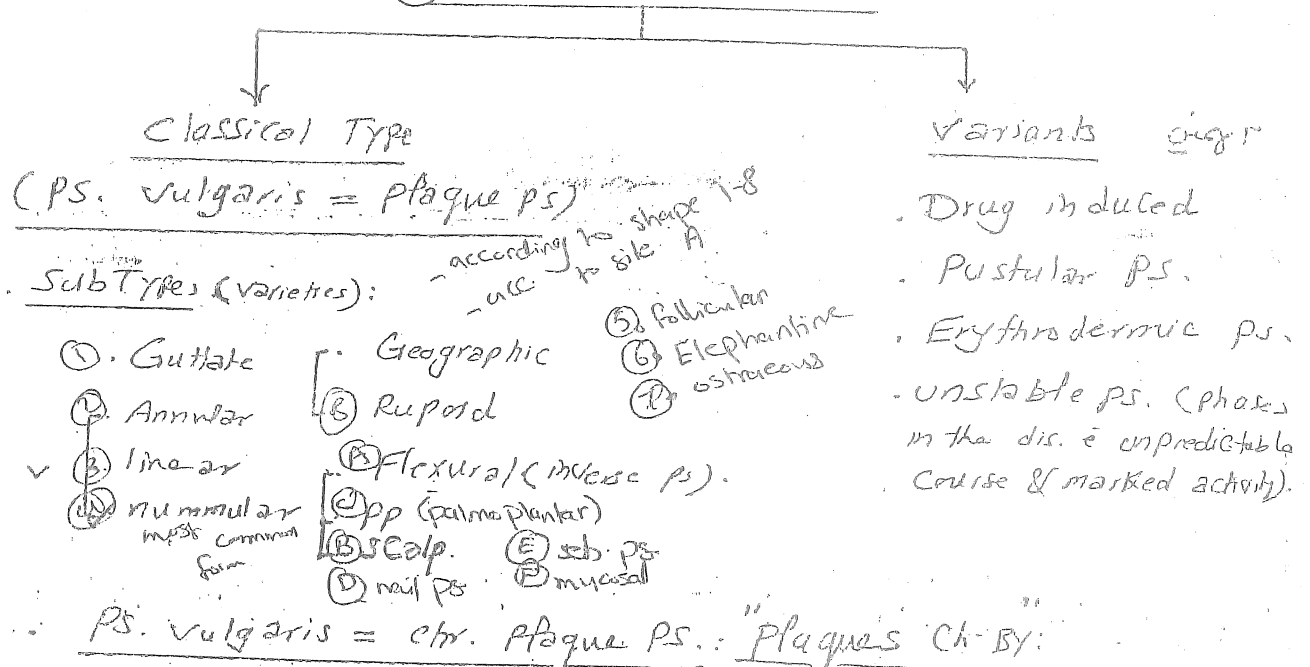 Classical Type
(PS. vulgaris = plaque ps)
- according to shape 1-8
- acc. to site A
. SubTypes (varieties):
①. Guttate
②. Annular
③. linear
④. nummular
most common form
. Geographic
⑧ Rupoid
⑤. follicular
⑥ Elephantine
⑦. ostraceous
Ⓐ Flexural (inverse ps).
Ⓒ pp (palmoplantar)
Ⓑ Scalp.
Ⓔ seb. ps.
Ⓓ nail ps
Ⓕ mucosal
Variants
. Drug induced
. Pustular Ps.
. Erythrodermic ps.
- unstable ps. (phases
in the dis. ē unpredictable
Course & marked activity).
∴ PS. vulgaris = chr. Plaque PS.: "Plaques" Ch. By: